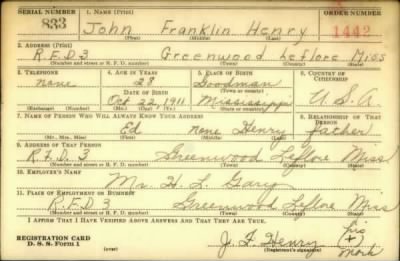 SERIAL NUMBER 1. NAME (Print) ORDER NUMBER
833 John Franklin Henry 1442
(First) (Middle) (Last)
2. ADDRESS (Print)
R.F.D 3 Greenwood Leflore Miss
(Number and street or R. F. D. number) (Town) (County) (State)
3. TELEPHONE 4. AGE IN YEARS 5. PLACE OF BIRTH 6. COUNTRY OF CITIZENSHIP
none 28 Goodman
DATE OF BIRTH (Town or county)
Oct 22, 1911 Mississippi U.S.A.
(Exchange) (Number) (Mo.) (Day) (Yr.) (State or country)
7. NAME OF PERSON WHO WILL ALWAYS KNOW YOUR ADDRESS 8. RELATIONSHIP OF THAT PERSON
Ed none Henry father
(Mr., Mrs., Miss) (First) (Middle) (Last)
9. ADDRESS OF THAT PERSON
R.F.D. 3 Greenwood Leflore Miss
(Number and street or R. F. D. number) (Town) (County) (State)
10. EMPLOYER'S NAME
Mr. H. L. Gary
11. PLACE OF EMPLOYMENT OR BUSINESS
R.F.D 3 Greenwood Leflore Miss
(Number and street or R. F. D. number) (Town) (County) (State)
I AFFIRM THAT I HAVE VERIFIED ABOVE ANSWERS AND THAT THEY ARE TRUE.
REGISTRATION CARD his
D. S. S. Form 1 (over) J. F. Henry (+)
(Registrant's signature) mark